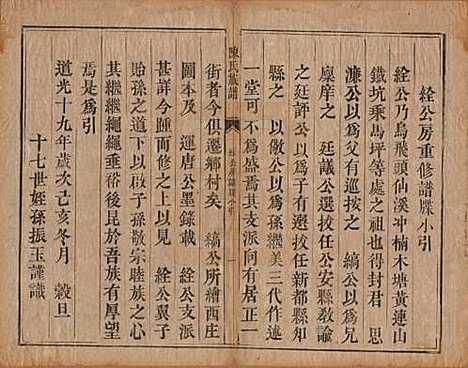 絟公房重修譜牒小引
絟公乃鳥飛頭仙溪冲楠木塘黃連山
鐵坑乘馬坪等處之祖也得封君 思
濂公以為父有巡按之 縞公以為兄
廪庠之 廷議公選按任公安縣敎諭
之廷評公以為子有 選授任新都知
縣之 以儆公以為孫繼美三代作述
一堂可不為盛焉其支派向有居正一
陳氏族譜
街者今俱遷鄉村矣 縞公所繪西庄
圖本及 運唐公墨錄載 絟公支派
甚詳今踵而修之上以昌 絟公翼子
貽孫之道下以啟子孫敬宗睦族之心
其繼繼繩繩垂裕後昆於吾族有厚望
焉是為引
道光十九年歲次己亥冬月 穀旦
十七世姪孫振玉謹識